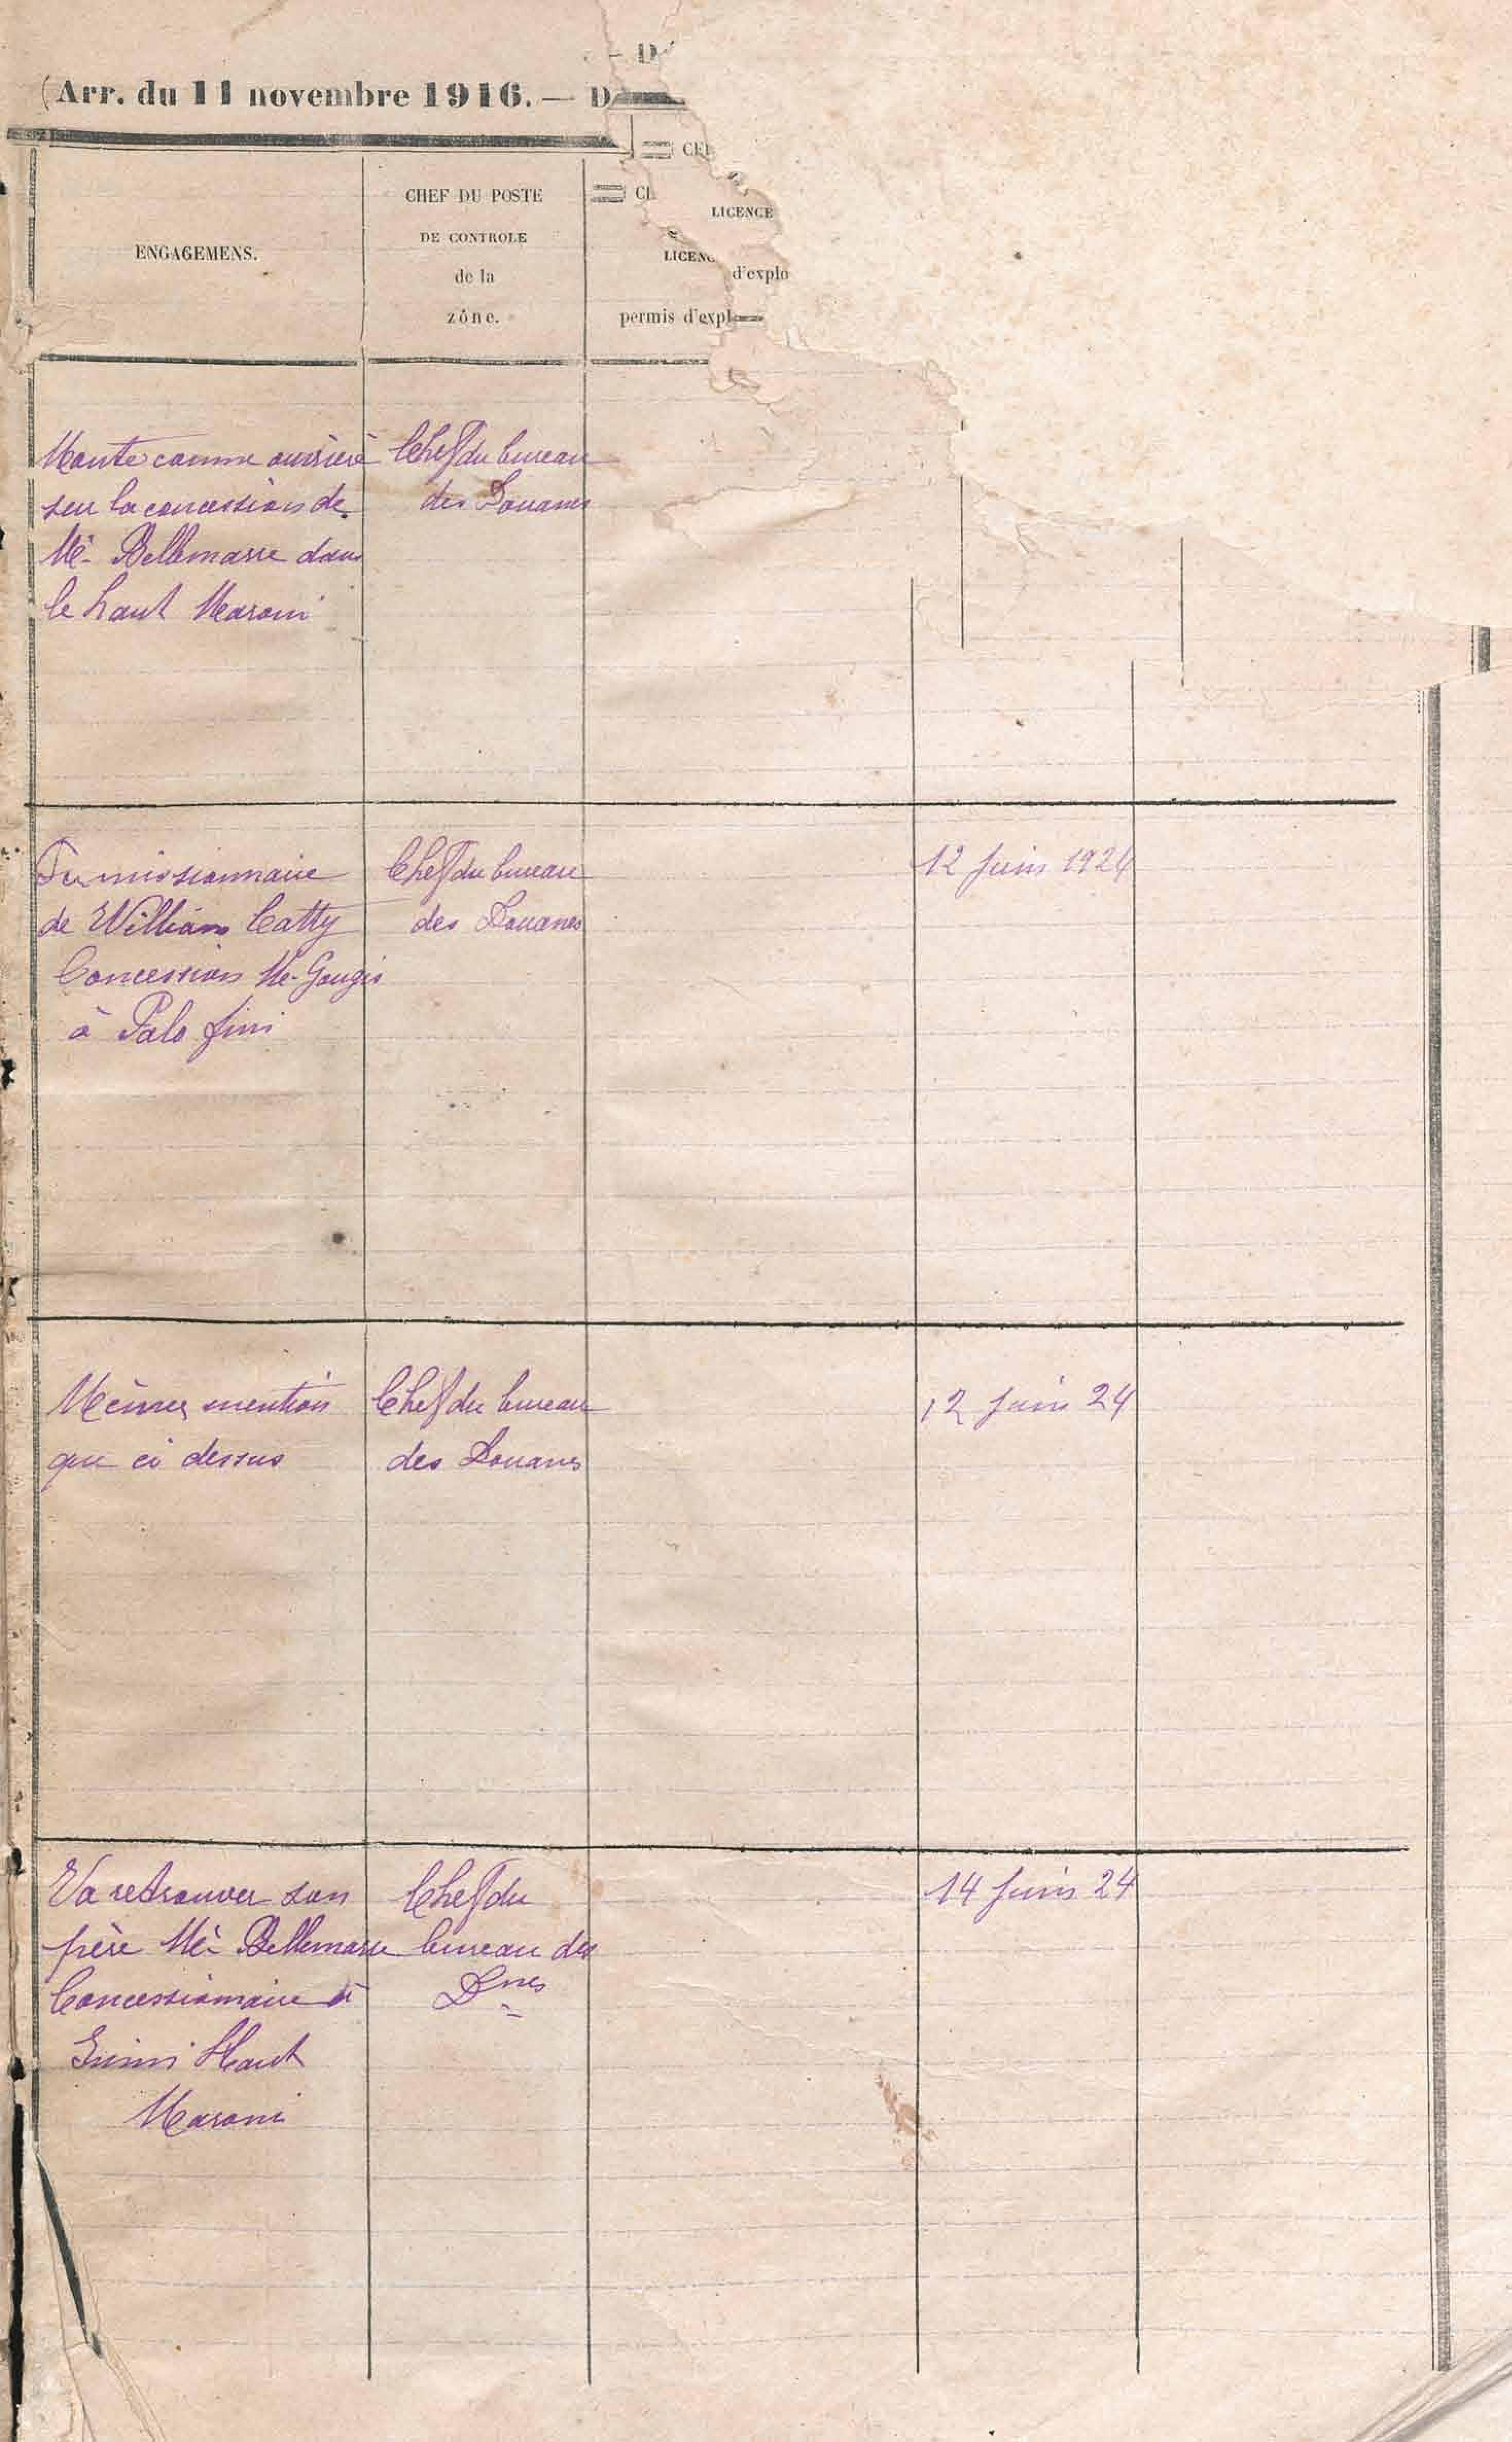 — D
(Arr. du 11 novembre 1916. — D
ENGAGEMENS.
CHEF DU POSTE
DE CONTROLE
de la
zône.
LICENCE
d'explo
permis d'expl
Monte comme ouvrière
sur la concession de
Mr. Bellemarre dans
le haut Maroni
Chef du bureau
des Douanes
Permissionnaire
de William Catty
Concession Me. Gougis
à Palo fini
Chef du bureau
des Douanes
12 Juin 1924
Mêmes mention
que ci dessus
Chef du bureau
des Douanes
12 Juin 24
Va retrouver son
frère Mr. Bellemarre
Concessionnaire à
Haut
Maroni
Chef du
bureau des
Dnes
14 Juin 24